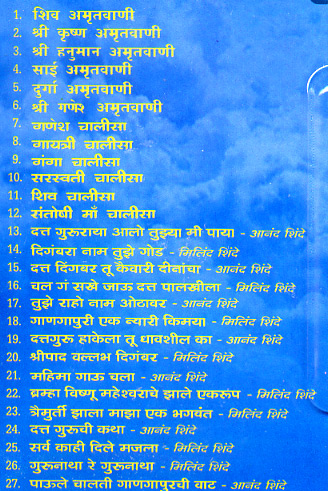 1. शिव अमृतवाणी
2. श्री कृष्ण अमृतवाणी
3. श्री हनुमान अमृतवाणी
4. साई अमृतवाणी
5. दुर्गा अमृतवाणी
6. श्री गणेश अमृतवाणी
7. गणेश चालीसा
8. गायत्री चालीसा
9. गंगा चालीसा
10. सरस्वती चालीसा
11. शिव चालीसा
12. संतोषी माँ चालीसा
13. दत्त गुरूराया आलो तुझ्या मी पाया - आनंद शिंदे
14. दिगंबरा नाम तुझे गोड - मिलिंद शिंदे
15. दत्त दिंगबर तू कैवारी दीनांचा - आनंद शिंदे
16. चल गं सखे जाऊ दत्त पालखीला - मिलिंद शिंदे
17. तुझे राहो नाम ओठावर - आनंद शिंदे
18. गाणगापुरी एक न्यारी किमया - मिलिंद शिंदे
19. दत्तगुरू हाकेला तू धावशील का - आनंद शिंदे
20. श्रीपाद वल्लभ दिगंबर - मिलिंद शिंदे
21. महिमा गाऊ चला - आनंद शिंदे
22. ब्रम्हा विष्णू महेश्वराचे झाले एकरूप - मिलिंद शिंदे
23. त्रैमुर्ती झाला माझा एक भगवंत - मिलिंद शिंदे
24. दत्त गुरूची कथा - आनंद शिंदे
25. सर्व काही दिले मजला - मिलिंद शिंदे
26. गुरूनाथा रे गुरूनाथा - मिलिंद शिंदे
27. पाऊले चालती गाणगापुरची वाट - आनंद शिंदे